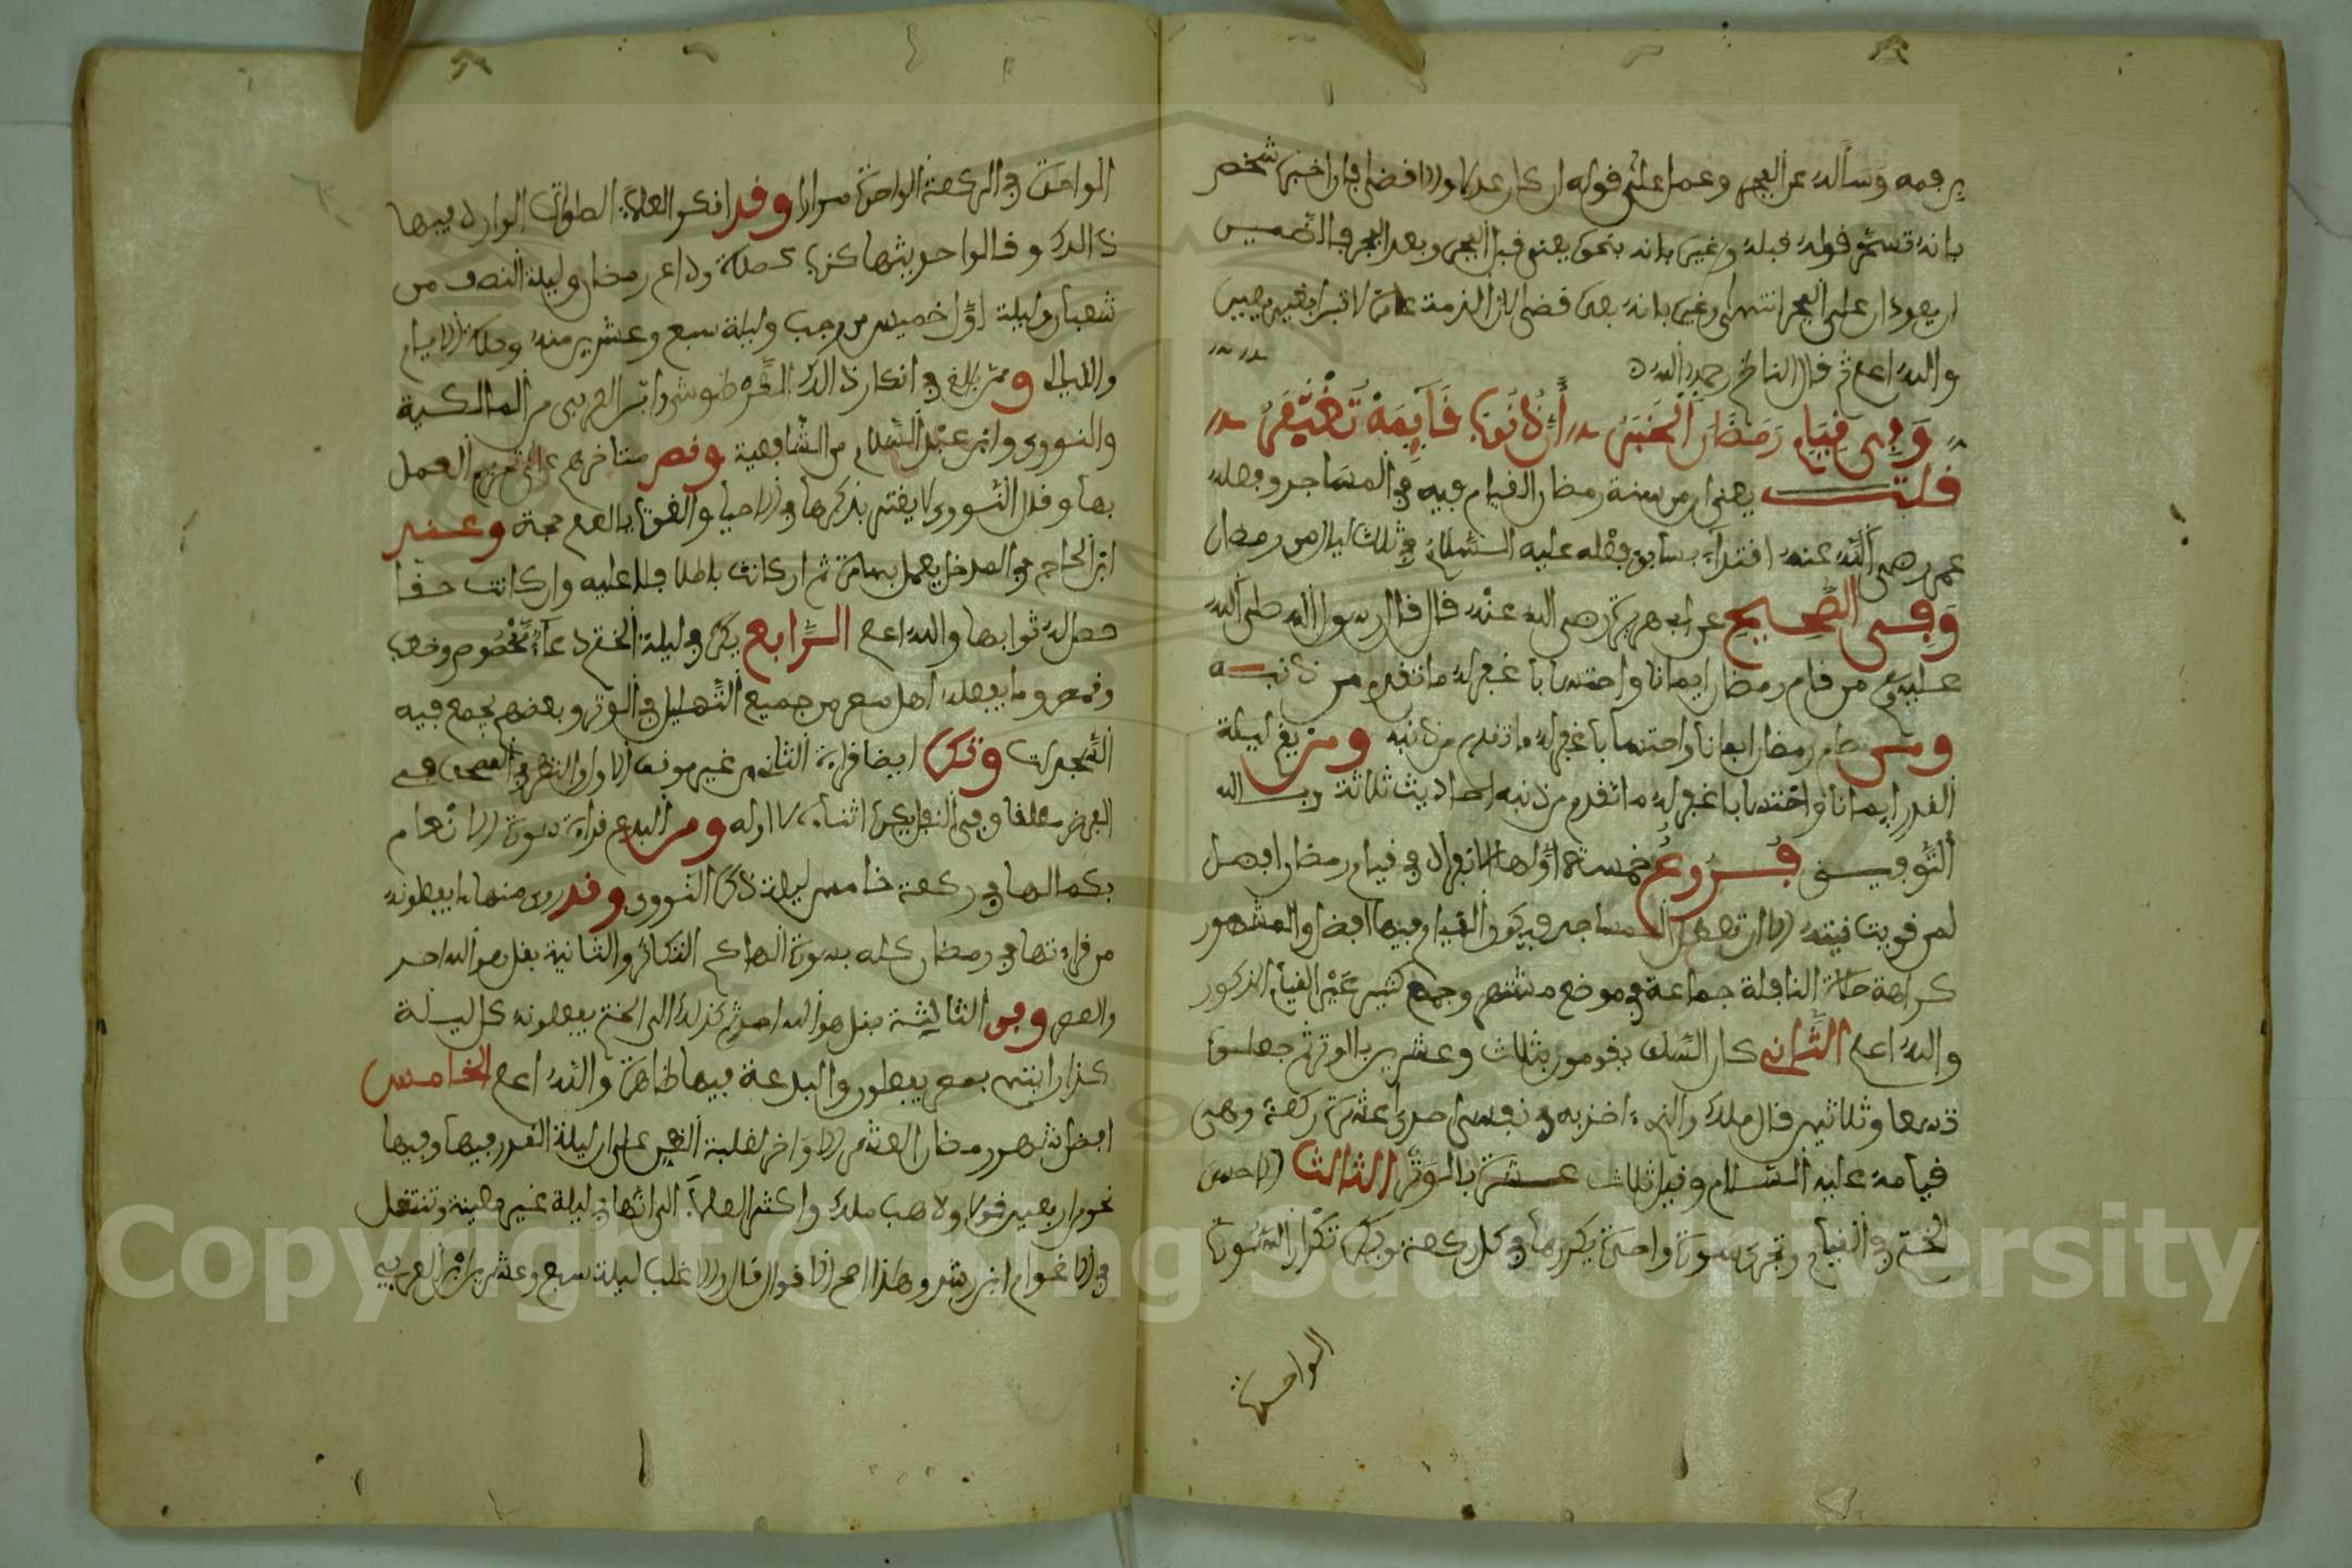 برقمه وسأله عن الفجر وعمل على قوله ان كان عدلا والا قضى فان اخبره شخص
بانه قسم قوله قبله وغيره بانه بنحو يعني قبل الفجر وبعد الفجر فالصميس
على الفجر انتهى وغيره بانه بعده قضى لان الذمة عامرة لا تبرا بغير يقين
والله اعلم ثم قال الناظم رحمه الله
وفي قيام رمضان الخبر
قلت يعني ان من سنة رمضان القيام فيه في المساجد وفعله
عمر رضي الله عنه اقتداء بسابق فعله عليه السلام في ثلاث ليال من رمضان
وفي الصحيح عن ابي هريرة رضي الله عنه قال قال رسول الله صلى الله
عليه وسلم من قام رمضان ايمانا واحتسابا غفر له ما تقدم من ذنبه
ومن صام رمضان ايمانا واحتسابا غفر له ما تقدم من ذنبه ومن يقم ليلة
القدر ايمانا واحتسابا غفر له ما تقدم من ذنبه احاديث ثلاثة وبالله
التوفيق فروع خمسة اولها الانفراد في قيام رمضان افضل
لمن قويت نيته الا ان تعطل المساجد فيكون القيام فيها افضل والمشهور
كراهة صلاة النافلة جماعة في موضع مشتهر وجمع كثير غير القيام المذكور
والله اعلم الثاني كان السلف يقومون بثلاث وعشرين بالوتر ثم جعلت
تسعا وثلاثين قال ملك والذي اخذ به في نفسي احدى عشرة ركعة وهي
قيامه عليه السلام وقيل ثلاث عشرة بالوتر الثالث الاحسن
الختم في القيام وتجزى سورة واحدة يكررها في كل ركعة ويكره تكرار السورة
الواحدة
الواحدة في الركعة الواحدة مرارا وقد انكر العلماء الصلوات الوارد فيها
ذالك وقالوا حديثها كذب كصلاة وداع رمضان وليلة النصف من
شعبان وليلة اول خميس من رجب وليلة سبع وعشرين منه وصلاة الايام
والليالي وممن بالغ في انكار ذالك الطرطوشي وابن العربي من المالكية
والنووي وابن عبد السلام من الشافعية ونص متاخرهم على تحريم العمل
بها وقال النووي لا يغتر بذكرها في الاحياء والقوت بالعلم حجة وعند
ابن الحاج في المدخل يعمل بها مرة ثم ان كانت باطلا فلا عليه وان كانت حقا
حصل له ثوابها والله اعلم الرابع يكره في ليلة الختم دعاء مخصوص وخطب
وقصص وما يفعله اهل مصر من جميع التهليل في الوتر وبعضهم يجمع فيه
السجدات وتكره ايضا قراءة الثاني من غير موقف الاول والنظر في المصحف في
الفرض مطلقا وفي النفل يكره اثناءه لا اوله ومن البدع قراءة سورة الانعام
بكمالها في ركعة خامس ليلة ذكره النووي وقد روى منها ما يفعلونه
من قراءتها في رمضان كله بسورة الهاكم التكاثر والثانية بقل هو الله احد
والعصر وفي الثالثة بقل هو الله احد ثم كذلك الى الختم يفعلونه كل ليلة
كذا رايتهم بمصر يفعلون والبدعة فيها ظاهرة والله اعلم الخامس
افضل شهر رمضان العشر الاواخر لغلبة الظن على ان ليلة القدر فيها وفيها
نحو من اربعين قولا ولاهب ملك واكثر العلماء الى انها في ليلة غير معينة وتنتقل
في الاعوام ابن رشد وهذا اصح الاقوال قال والاغلب ليلة سبع وعشرين ابن العربي
Copyright © King Saud University